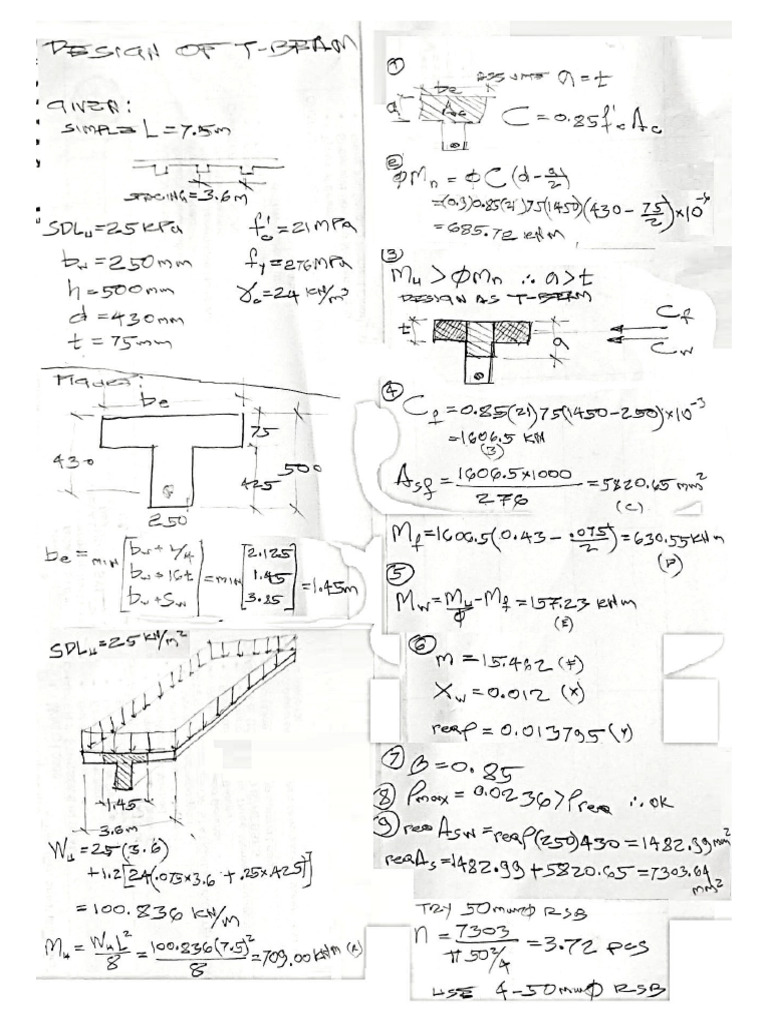 DESIGN OF T-BEAM
GIVEN:
SIMPLE L = 7.5m
SPACING = 3.6m
SDLu = 25 KPa f'c = 21 MPa
bw = 250mm fy = 276 MPa
h = 500mm γc = 24 KN/m³
d = 430mm
t = 75mm
be
75
430
425
500
250
be = MIN [bw + L/4
bw + 16t
bw + Sw] = MIN [2.125
1.45
3.85] = 1.45m
SDLu = 25 KN/m²
1.45
3.6m
Wu = 25(3.6)
+1.2[24(.075x3.6 + .25x.425)]
= 100.836 KN/m
Mu = WuL²/8 = 100.836(7.5)²/8 = 709.00 KNm (A)
① ASSUME a = t
be
a
Ac
C = 0.85f'c Ac
② φMn = φC(d - a/2)
= (0.9)0.85(21)75(1450)(430 - 75/2)x10⁻⁶
= 685.72 KNm
③ Mu > φMn ∴ a > t
DESIGN AS T-BEAM
t
a
Cf
Cw
④ Cf = 0.85(21)75(1450-250)x10⁻³
= 1606.5 KN
(B)
Asf = 1606.5x1000/276 = 5820.65 mm²
(C)
Mf = 1606.5(0.43 - .075/2) = 630.55 KNm
(D)
⑤
Mw = Mu/φ - Mf = 157.23 KNm
(E)
⑥
m = 15.462 (F)
Xw = 0.012 (X)
reqρ = 0.013795 (Y)
⑦ β = 0.85
⑧ ρmax = 0.0236 > ρreq ∴ OK
⑨ req Asw = reqρ(250)430 = 1482.99 mm²
reqAs = 1482.99 + 5820.65 = 7303.64
mm²
TRY 50mmφ RSB
n = 7303/(π50²/4) = 3.72 pcs
USE 4-50mmφ RSB